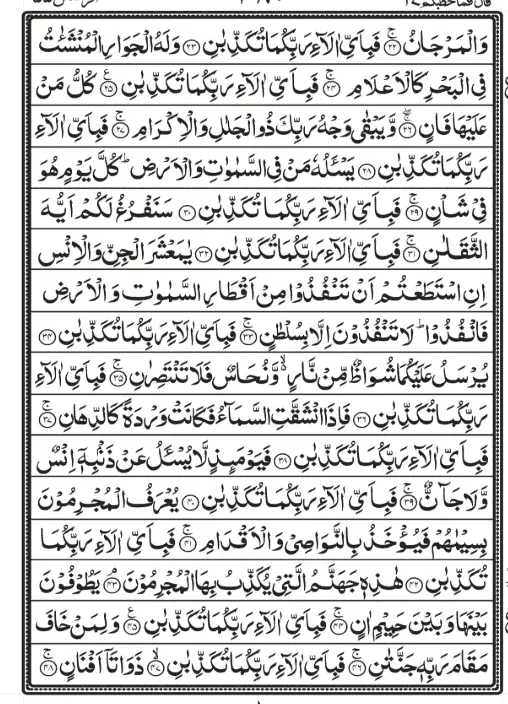 قال فما خطبكم ٢٧
وَالْمَرْجَانُ ۚ﴿۲۲﴾ فَبِاَيِّ اٰلَآءِ رَبِّكُمَا تُكَذِّبٰنِ ﴿۲۳﴾ وَلَهُ الْجَوَارِ الْمُنْشَـٰٔتُ
فِي الْبَحْرِ كَالْاَعْلَامِ ۚ﴿۲۴﴾ فَبِاَيِّ اٰلَآءِ رَبِّكُمَا تُكَذِّبٰنِ ﴿۲۵﴾ كُلُّ مَنْ
عَلَيْهَا فَانٍ ﴿۲۶﴾ وَّيَبْقٰى وَجْهُ رَبِّكَ ذُو الْجَلٰلِ وَالْاِكْرَامِ ۚ﴿۲۷﴾ فَبِاَيِّ اٰلَآءِ
رَبِّكُمَا تُكَذِّبٰنِ ﴿۲۸﴾ يَسْـَٔلُهٗ مَنْ فِي السَّمٰوٰتِ وَالْاَرْضِ ؕ كُلَّ يَوْمٍ هُوَ
فِيْ شَاْنٍ ۚ﴿۲۹﴾ فَبِاَيِّ اٰلَآءِ رَبِّكُمَا تُكَذِّبٰنِ ﴿۳۰﴾ سَنَفْرُغُ لَكُمْ اَيُّهَ
الثَّقَلٰنِ ۚ﴿۳۱﴾ فَبِاَيِّ اٰلَآءِ رَبِّكُمَا تُكَذِّبٰنِ ﴿۳۲﴾ يٰمَعْشَرَ الْجِنِّ وَالْاِنْسِ
اِنِ اسْتَطَعْتُمْ اَنْ تَنْفُذُوْا مِنْ اَقْطَارِ السَّمٰوٰتِ وَالْاَرْضِ
فَانْفُذُوْا ؕ لَا تَنْفُذُوْنَ اِلَّا بِسُلْطٰنٍ ۚ﴿۳۳﴾ فَبِاَيِّ اٰلَآءِ رَبِّكُمَا تُكَذِّبٰنِ ﴿۳۴﴾
يُرْسَلُ عَلَيْكُمَا شُوَاظٌ مِّنْ نَّارٍ ۙ وَّنُحَاسٌ فَلَا تَنْتَصِرٰنِ ۚ﴿۳۵﴾ فَبِاَيِّ اٰلَآءِ
رَبِّكُمَا تُكَذِّبٰنِ ﴿۳۶﴾ فَاِذَا انْشَقَّتِ السَّمَآءُ فَكَانَتْ وَرْدَةً كَالدِّهَانِ ۚ﴿۳۷﴾
فَبِاَيِّ اٰلَآءِ رَبِّكُمَا تُكَذِّبٰنِ ﴿۳۸﴾ فَيَوْمَئِذٍ لَّا يُسْـَٔلُ عَنْ ذَنْۢبِهٖٓ اِنْسٌ
وَّلَا جَآنٌّ ۚ﴿۳۹﴾ فَبِاَيِّ اٰلَآءِ رَبِّكُمَا تُكَذِّبٰنِ ﴿۴۰﴾ يُعْرَفُ الْمُجْرِمُوْنَ
بِسِيْمٰهُمْ فَيُؤْخَذُ بِالنَّوَاصِيْ وَالْاَقْدَامِ ۚ﴿۴۱﴾ فَبِاَيِّ اٰلَآءِ رَبِّكُمَا
تُكَذِّبٰنِ ﴿۴۲﴾ هٰذِهٖ جَهَنَّمُ الَّتِيْ يُكَذِّبُ بِهَا الْمُجْرِمُوْنَ ۘ﴿۴۳﴾ يَطُوْفُوْنَ
بَيْنَهَا وَبَيْنَ حَمِيْمٍ اٰنٍ ۚ﴿۴۴﴾ فَبِاَيِّ اٰلَآءِ رَبِّكُمَا تُكَذِّبٰنِ ﴿۴۵﴾ وَلِمَنْ خَافَ
مَقَامَ رَبِّهٖ جَنَّتٰنِ ۚ﴿۴۶﴾ فَبِاَيِّ اٰلَآءِ رَبِّكُمَا تُكَذِّبٰنِ ۙ﴿۴۷﴾ ذَوَاتَآ اَفْنَانٍ ۚ﴿۴۸﴾